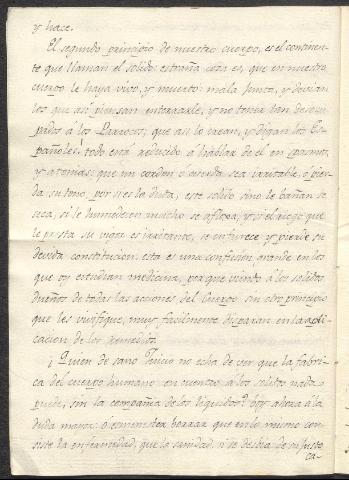 y hace.
El segundo principio de nuestro cuerpo, es el continen-
te que llaman el solido: estraña cosa es, que en nuestro
cuerpo le haya vivo, y muerto: mala junta, y devian
los que asi piensan enterrarle, y no tener tan desocu-
pados á los Parrocos; que asi lo crean, y digan los Es-
pañoles! todo está reducido á hablar de el en pasmos,
y atomias: que un cordon o cuerda sea irritable, o pier-
da su tono, por si es la duda, este solido sino le bañan se
seca, si le humedecen mucho se afloxa, y si el riego que
le presta su vigor es irritante, se enfurece y pierde su
devida constitucion: esta es una confusion grande en los
que oy estudian medicina, porque viendo á los solidos
dueños de todas las acciones del Cuerpo sin otro principio
que les vivifique, muy facilmente disparan en la apli-
cacion de los remedios.
¡Quien de sano juicio no echa de ver que la fabri-
ca del cuerpo humano en cuanto á los solidos nada
puede, sin la compañia de los liquidos? Voy ahora á la
duda mayor: o es menester borrar que en lo mismo con-
siste la enfermedad, que la sanidad, si se desvia de su justo
ca-